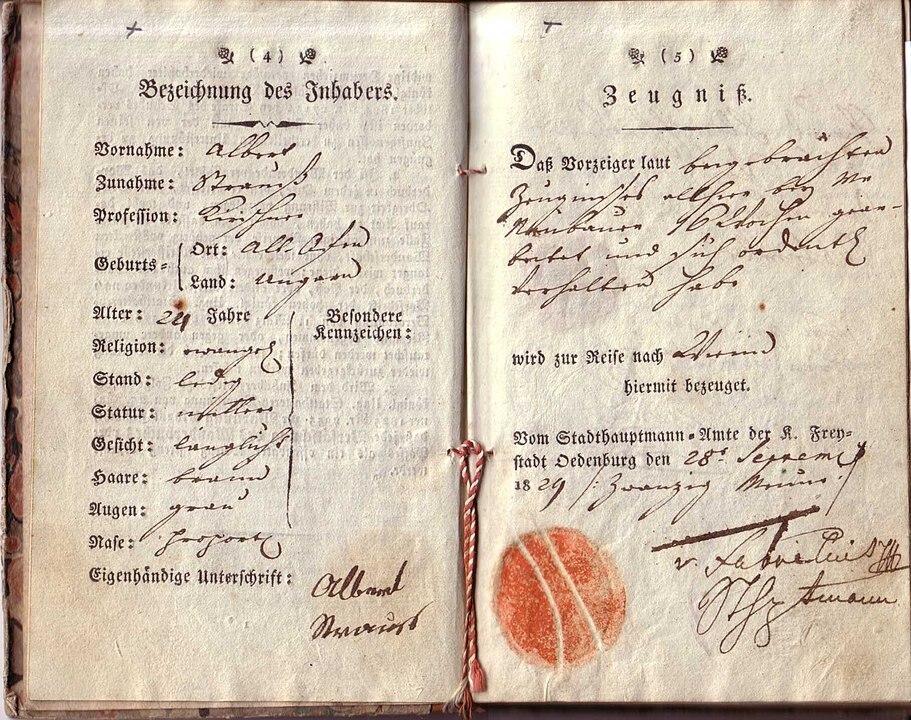 (4)
Bezeichnung des Inhabers.
Vornahme: Albert
Zunahme: Strauß
Profession: Kirschner
Geburts= Ort: Alt Ofen
Land: Ungarn
Alter: 24 Jahre
Besondere
Kennzeichen:
Religion: evangel
Stand: ledig
Statur: mittere
Gesicht: länglicht
Haare: braun
Augen: grau
Nase: proport
Eigenhändige Unterschrift:
Albert
Strauß
(5)
Zeugniß.
Daß Vorzeiger laut beygebrachten
Zeugnisses allhier bey
Neubauer 16 Wochen gear-
beitet und sich ordentl
verhalten habe
wird zur Reise nach Wienn
hiermit bezeuget.
Vom Stadthauptmann=Amte der K. Frey=
stadt Oedenburg den 28t Septem
1829 /: Zwanzig Neun :/
v.
Sthptmann